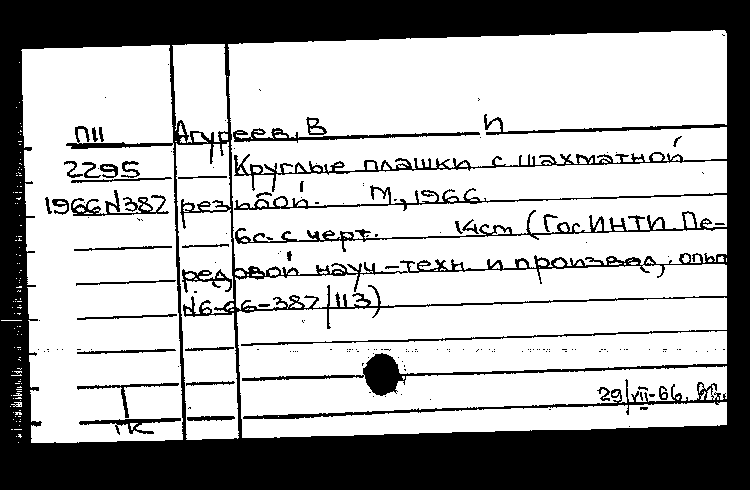 П11 Агуреев, В И
2295 Круглые плашки с шахматной
1966 N387 резьбой. М., 1966.
6с. с черт. 14см (ГосИНТИ Пе-
редовой науч-техн. и производ. опыт
N6-66-387/113)
29/VII-66.
ГК